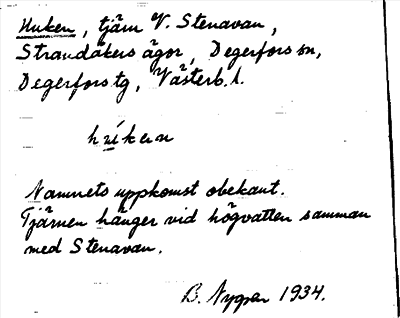 Huken, tjärn V. Stenavan,
Strandåkers ägor, Degerfors sn,
Degerfors tg, Västerb. l.
Namnets uppkomst obekant.
Tjärnen hänger vid högvatten samman
med Stenavan.
B. Nygren 1934.